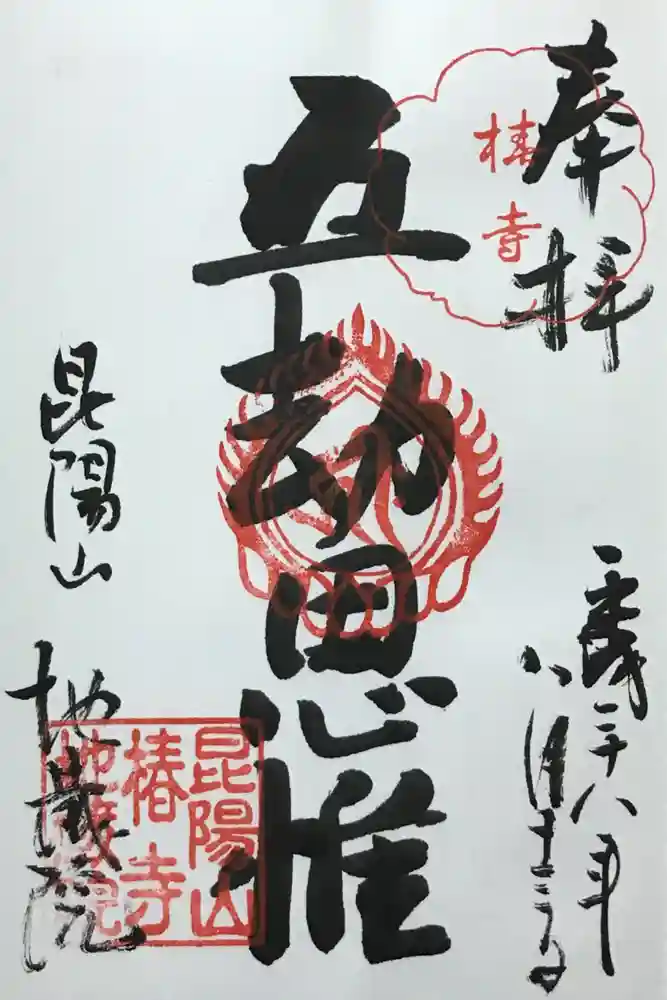 奉拝
椿寺
平成二十八年
八月十三日
五劫思惟
昆陽山
地蔵院
昆陽山
椿寺
地蔵院